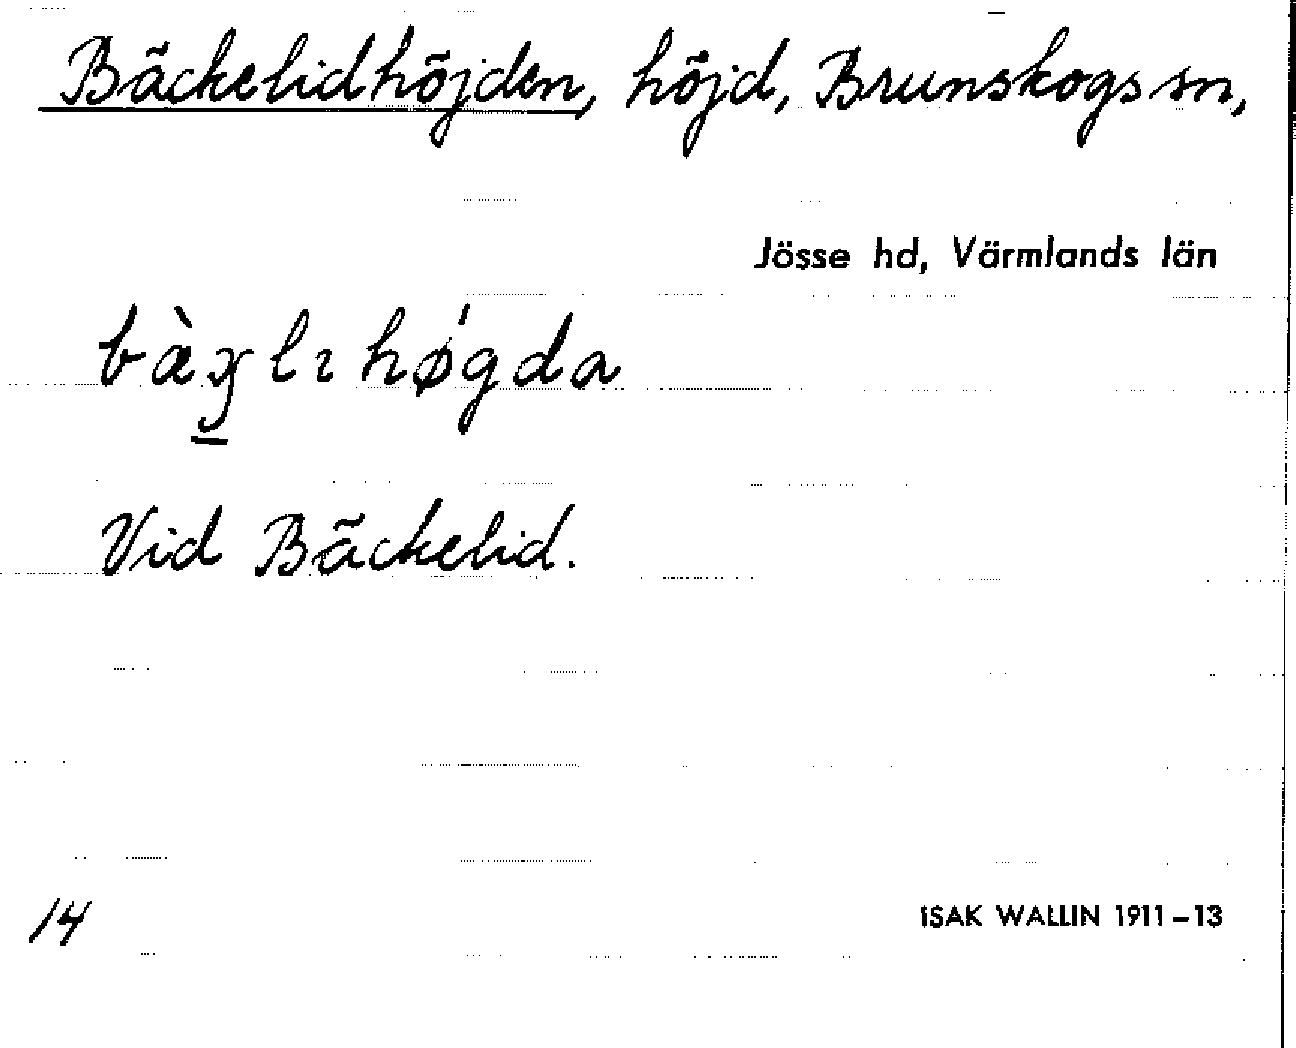 Bäckelidhöjden, höjd, Brunskogs sn,
Jösse hd, Värmlands län
Vid Bäckelid.
14
ISAK WALLIN 1911–13